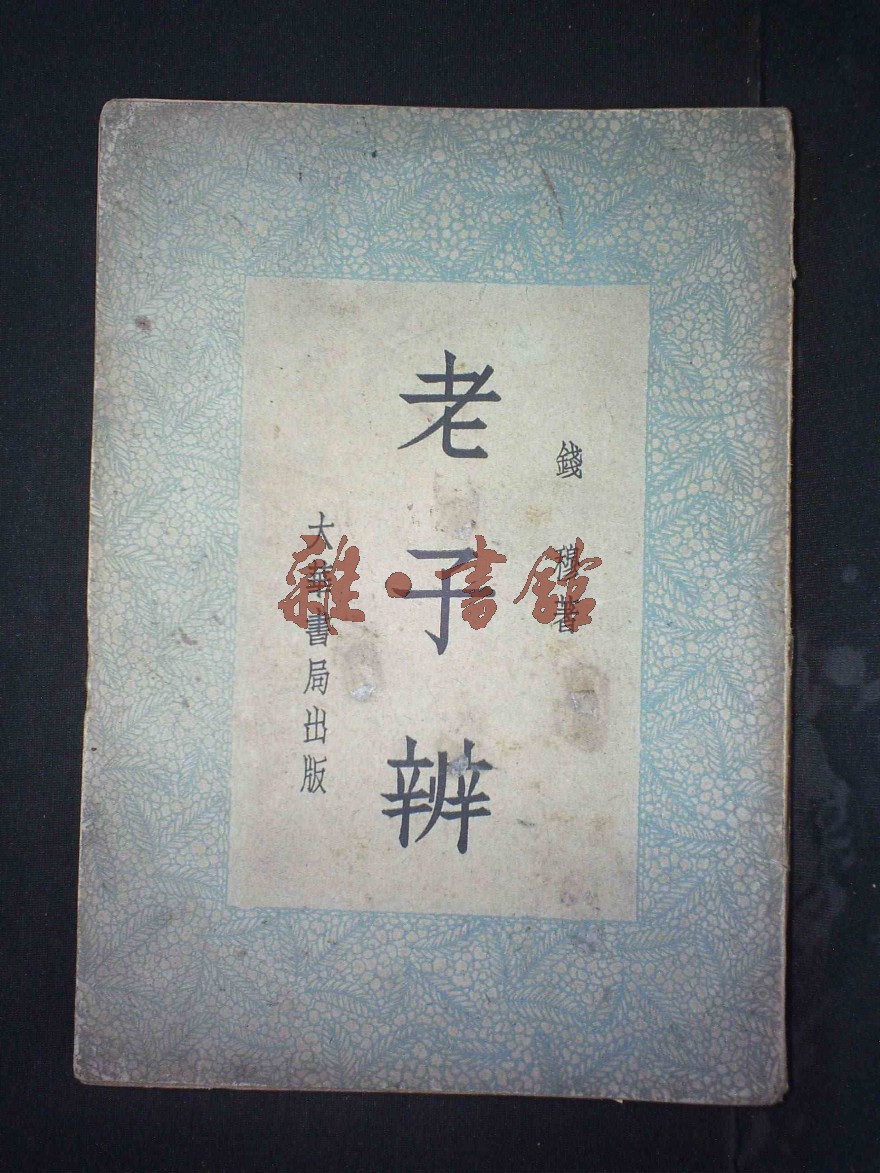 錢穆著
老子辨
大華書局出版
雜·書館